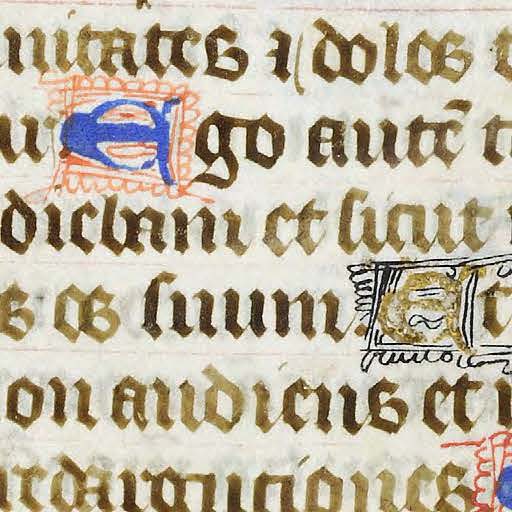 nitates ⁊ dolos
Ego autē
audiebam et sicut
os suum Et
non audiens et
redargutiones